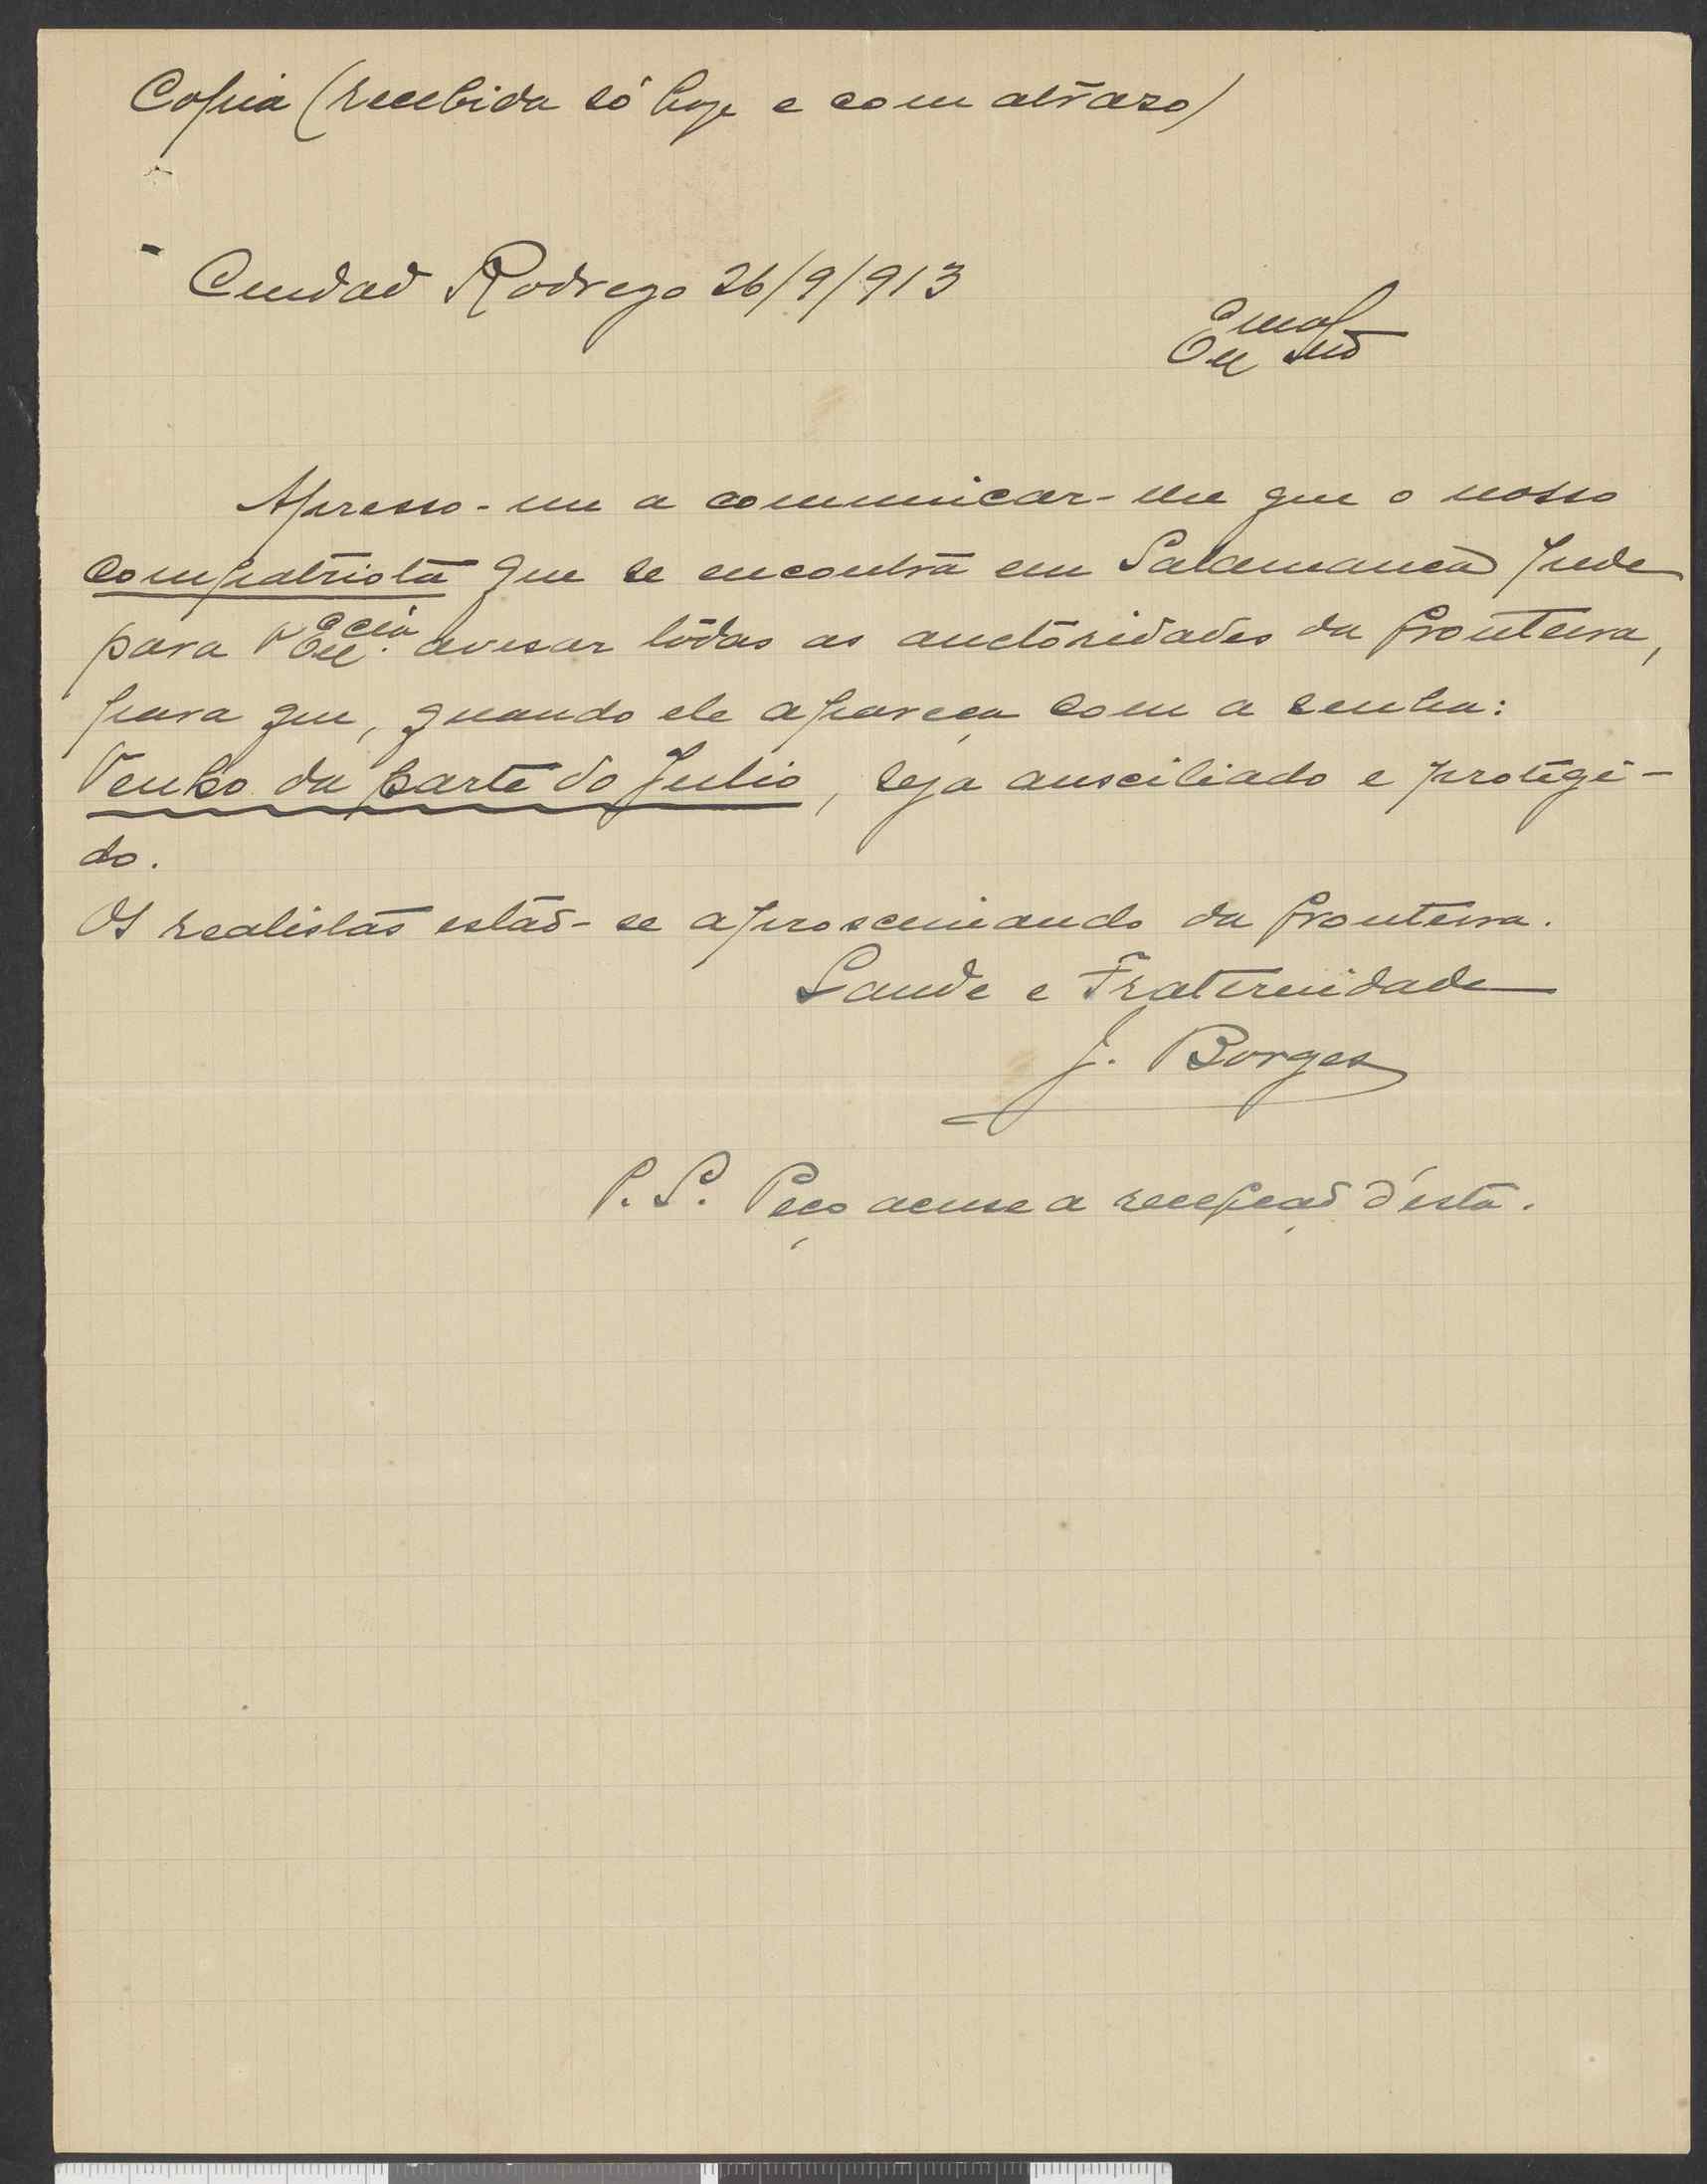 Copia (recebida só hoje e com atrazo)
Ciudad Rodrigo 26/9/913
Exmo Snr
Apresso-me a communicar-lhe que o nosso
compatriota que se encontra em Salamanca pede
para V Excia. avisar tôdas as auctoridades da fronteira,
para que, quando ele apareça com a senha:
Venho da parte do Julio, seja aussiliado e protegi-
do.
Os realistas estão-se aproscimando da fronteira.
Saude e Fraternidade
J. Borges
P. S. Peço acuse a recepção d'esta.